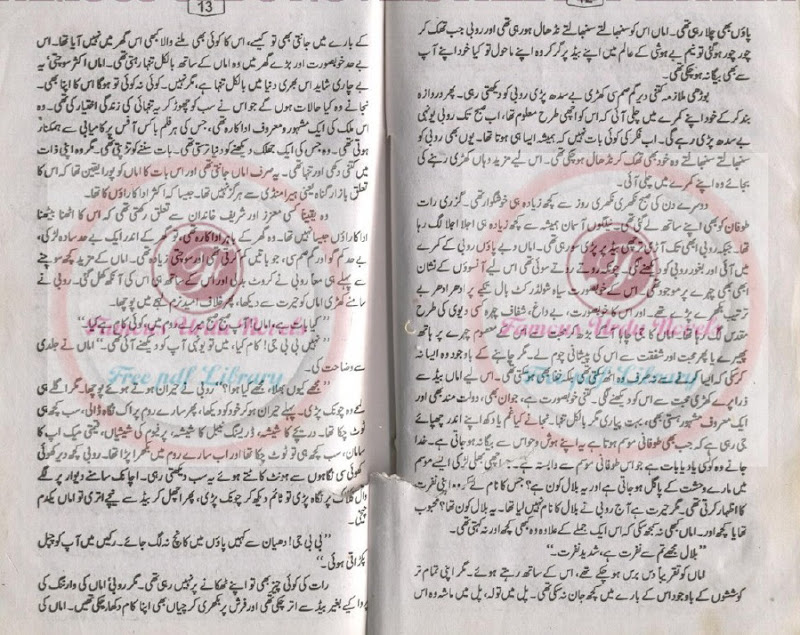 12
پاؤں بھی چلا رہی تھی۔ اماں اس کو سنبھالتے سنبھالتے نڈھال ہو رہی تھی اور روبی جب تھک کر
چور چور ہو گئی تو نیم بے ہوشی کے عالم میں اپنے بیڈ پر گر کر وہ اپنے ماحول تو کیا خود اپنے آپ
سے بھی بیگانہ ہو چکی تھی۔
بوڑھی ملازمہ کتنی دیر گم صم سی کھڑی بے سدھ پڑی روبی کو دیکھتی رہی۔ پھر دروازہ
بند کر کے خود اپنے کمرے میں چلی آئی کہ اس کو اچھی طرح معلوم تھا، اب صبح تک روبی یونہی
بے سدھ پڑی رہے گی۔ اب فکر کی کوئی بات نہیں کہ ہمیشہ ایسا ہی ہوتا تھا۔ یوں بھی روبی کو
سنبھالتے سنبھالتے وہ خود بھی تھک کر نڈھال ہو چکی تھی۔ اس لیے مزید وہاں کھڑی رہنے کی
بجائے وہ اپنے کمرے میں چلی آئی۔
دوسرے دن کی صبح نکھری نکھری روز سے کچھ زیادہ ہی خوشگوار تھی۔ گزری رات
طوفان کو بھی اپنے ساتھ لے گیا تھی۔ نیلگوں آسمان ہمیشہ سے کچھ زیادہ ہی اجلا اجلا لگ رہا
تھا۔ جبکہ روبی ابھی تک آڑی ترچھی بیڈ پر پڑی سو رہی تھی۔ اماں دبے پاؤں روبی کے کمرے
میں آئی اور بغور روبی کو دیکھنے لگی۔ چونکہ روتے روتے سوئی تھی اس لیے آنسوؤں کے نشان
ابھی بھی چہرے پر موجود تھے۔ اس کے خوبصورت سیاہ شولڈر کٹ بال تکیے پر ادھر ادھر بے
ترتیب بکھرے پڑے تھے۔ اور اس کا خوبصورت، بے داغ، شفاف چہرہ کسی دیوی کی طرح
مقدس لگ رہا تھا۔ اماں کا جی چاہا آگے بڑھ کر معصوم چہرے پر ہاتھ
پھیرے یا پھر محبت اور شفقت سے اس کی پیشانی چوم لے۔ مگر چاہنے کے باوجود وہ ایسا نہ
کر سکی کہ ایسا کرنے سے نہ صرف وہ اٹھ سکتی تھی بلکہ خفا بھی ہو سکتی تھی۔ اس لیے اماں بیڈ سے
ذرا پرے کھڑی محبت سے اس کو دیکھنے لگی۔ کتنی خوبصورت ہے، جوان بھی، دولت مند بھی اور
ایک معروف مشہور ہستی بھی، بہت پیاری مگر بالکل تنہا۔ نجانے کیا غم یا دکھ اپنے اندر چھپائے
جی رہی ہے کہ جب بھی طوفانی موسم ہوتا ہے یہ اپنے ہوش و حواس سے بیگانہ ہو جاتی ہے۔ خدا
جانے وہ کوئی یاد یا بات ہے جو اس طوفانی موسم سے وابستہ ہے۔ اچھی بھلی لڑکی ایسے موسم
میں مارے دہشت کے پاگل ہو جاتی ہے اور یہ بلال کون ہے؟ جس کا نام لے کر وہ اپنی نفرت
کا اظہار کرتی تھی۔ مگر حیرت ہے آج روبی نے بلال کا نام نہیں لیا تھا۔ یہ بلال کون تھا؟ محبوب
تھا یا کچھ اور۔ اماں کبھی نہ سمجھ سکی کہ اس ایک جملے کے علاوہ وہ کبھی کچھ اور نہ کہتی تھی۔
”بلال مجھے تم سے نفرت ہے، شدید نفرت۔“
اماں کو تقریباً دس برس ہو چکے تھے، اس کے ساتھ رہتے ہوئے۔ مگر اپنی تمام تر
کوششوں کے باوجود اس کے بارے میں کچھ جان نہ سکی تھی۔ پل میں تولہ، پل میں ماشہ وہ اس
13
کے بارے میں جانتی بھی تو کیسے، اس کا کوئی بھی ملنے والا کبھی اس گھر میں نہیں آیا تھا۔ اس
بے حد خوبصورت اور بڑے گھر میں وہ اماں کے ساتھ بالکل تنہا رہتی تھی۔ اماں اکثر سوچتی ”یہ
بے چاری شاید اس بھری دنیا میں بالکل تنہا ہے، مگر نہیں۔ کوئی نہ کوئی تو ہوگا اس کا اپنا بھی۔
نجانے وہ کیا حالات ہوں گے جو اس نے سب کو چھوڑ کر یہ تنہائی کی زندگی اختیار کی تھی۔ وہ
اس ملک کی ایک مشہور و معروف اداکارہ تھی، جس کی ہر فلم باکس آفس پر کامیابی سے ہمکنار
ہوتی تھی۔ وہ جس کی ایک جھلک دیکھنے کو دنیا ترستی تھی۔ بات سننے کو تڑپتی تھی۔ مگر وہ اپنی ذات
میں کتنی دکھی اور تنہا تھی۔ یہ صرف اماں جانتی تھی اور اس بات کا اماں کو پورا یقین تھا کہ اس کا
تعلق بازار گناہ یعنی ہیرا منڈی سے ہرگز نہیں تھا۔ جیسا کہ اکثر اداکاراؤں کا تھا۔
وہ یقیناً کسی معزز اور شریف خاندان سے تعلق رکھتی تھی کہ اس کا اٹھنا بیٹھنا
اداکاراؤں جیسا نہیں تھا۔ وہ گھر کے باہر اداکارہ تھی، تو گھر کے اندر ایک بے حد سادہ لڑکی،
بے حد کم گو اور گم صم سی، جو باتیں کم کرتی تھی اور سوچتی زیادہ تھی۔ اماں کے مزید کچھ سوچنے
سے پہلے ہی معاً روبی نے کروٹ بدلی اور اس کے ساتھ ہی اس کی آنکھ کھل گئی۔ روبی نے
سامنے کھڑی اماں کو حیرت سے دیکھا، پھر خلاف امید نرم لہجے میں پوچھا۔
”کیا بات ہے، اماں! آپ صبح صبح میرے کمرے میں، کوئی کام ہے کیا؟“
”نہیں بی بی جی! کام کیا، میں تو یونہی آپ کو دیکھنے آئی تھی۔“ اماں نے جلدی
سے وضاحت کی۔
”مجھے کیوں بھلا، مجھے کیا ہوا؟“ روبی نے حیران ہوتے ہوئے پوچھا۔ مگر اگلے ہی
لمحے وہ چونک پڑی۔ پہلے حیران ہو کر خود کو دیکھا، پھر سارے روم پر اک نگاہ ڈالی، سب کچھ ہی
ٹوٹ چکا تھا۔ دریچے کا شیشہ، ڈریسنگ ٹیبل کا شیشہ، پرفیوم کی شیشیاں، قیمتی میک اپ کا
سامان، سب کچھ ہی ٹوٹ چکا تھا اور اب سارے روم میں بکھرا پڑا تھا۔ روبی کچھ دیر کھوئی
کھوئی سی نگاہوں سے ہونٹ کاٹتے ہوئے یہ سب دیکھتی رہی۔ اچانک سامنے دیوار پر لگے
وال کلاک پر نگاہ پڑی تو ٹائم دیکھ کر چونک پڑی، پھر اچھل کر بیڈ سے نیچے اتری تو اماں یکدم
چیخی۔
”بی بی جی! دھیان سے کہیں پاؤں میں کانچ نہ لگ جائے۔ رکیں میں آپ کو چپل
پکڑاتی ہوں۔“
رات کی کوئی چیز بھی تو اپنے ٹھکانے پر نہیں رہی تھی۔ مگر روبی! اماں کی وارننگ کی
پروا کیے بغیر بیڈ سے اتر چکی تھی اور فرش پر بکھری کرچیاں بھی اپنا کام دکھا چکی تھیں۔ اماں کی
Famous Urdu Novels
Free pdf Library
Famous Urdu Novels
Free pdf Library